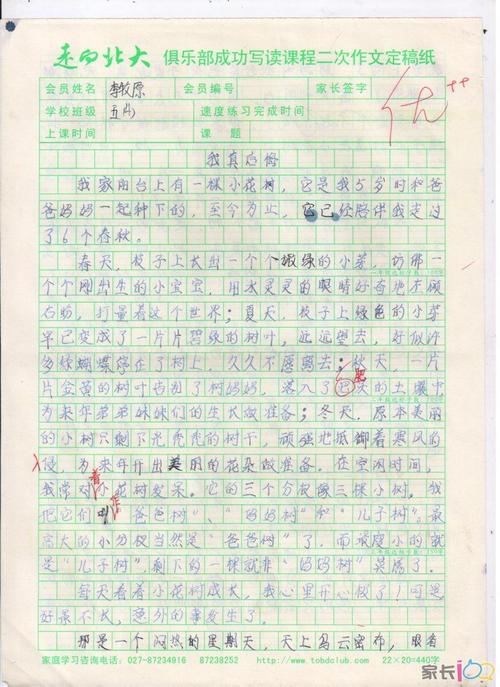 走向北大 俱乐部成功写读课程二次作文定稿纸
会员姓名 李牧原 会员编号 家长签字
学校班级 五(4) 速度练习完成时间
上课时间 课题
优++
我真后悔
我家阳台上有一棵小花树，它是我5岁时和爸
爸妈妈一起种下的，至今为止，它已经陪伴我走过
了6个春秋。
春天，枝子上长出一个个嫩绿的小芽，仿佛一
个个刚出生的小宝宝，用水灵灵的眼睛好奇地左顾
右盼，打量着这个世界；夏天，枝子上绿色的小芽
早已变成了一片片碧绿的树叶，远远望去，好似许
多绿蝴蝶停在了树上，久久不愿离去；秋天，一片
片金黄的树叶告别了树妈妈，落入了肥沃的土壤中
为来年弟弟妹妹们的生长做准备；冬天，原本美丽
的小树只剩下光秃秃的树干，顽强地抵御着寒风的
入侵，为来年开出美丽的花朵做准备。在空闲时间，
我常对着小花树发呆。它的三个分杈像三棵小树，我
把它们叫作"爸爸树"、"妈妈树"和"儿子树"。最
高大的小分杈当然是"爸爸树"了，而最瘦小的就
是"儿子树"，剩下的一棵就非"妈妈树"莫属了。
每天看着小花树成长，我心里开心极了！可是
好景不长，意外的事发生了。
那是一个闷热的星期天，天上乌云密布，眼看
家庭学习咨询电话：027-87234916 87238252 http://www.tobdclub.com 22×20=440字
家长100